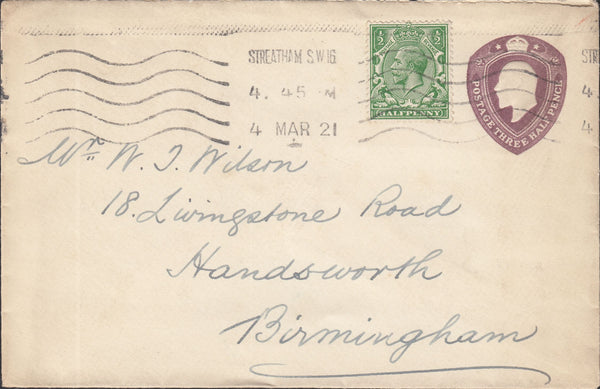 STREATHAM S.W.16
4. 45 M
4 MAR 21
½ ½
HALFPENNY
POSTAGE THREE HALF PENCE
STR
4.
4
Mr. W. J. Wilson
18. Livingstone Road
Handsworth
Birmingham